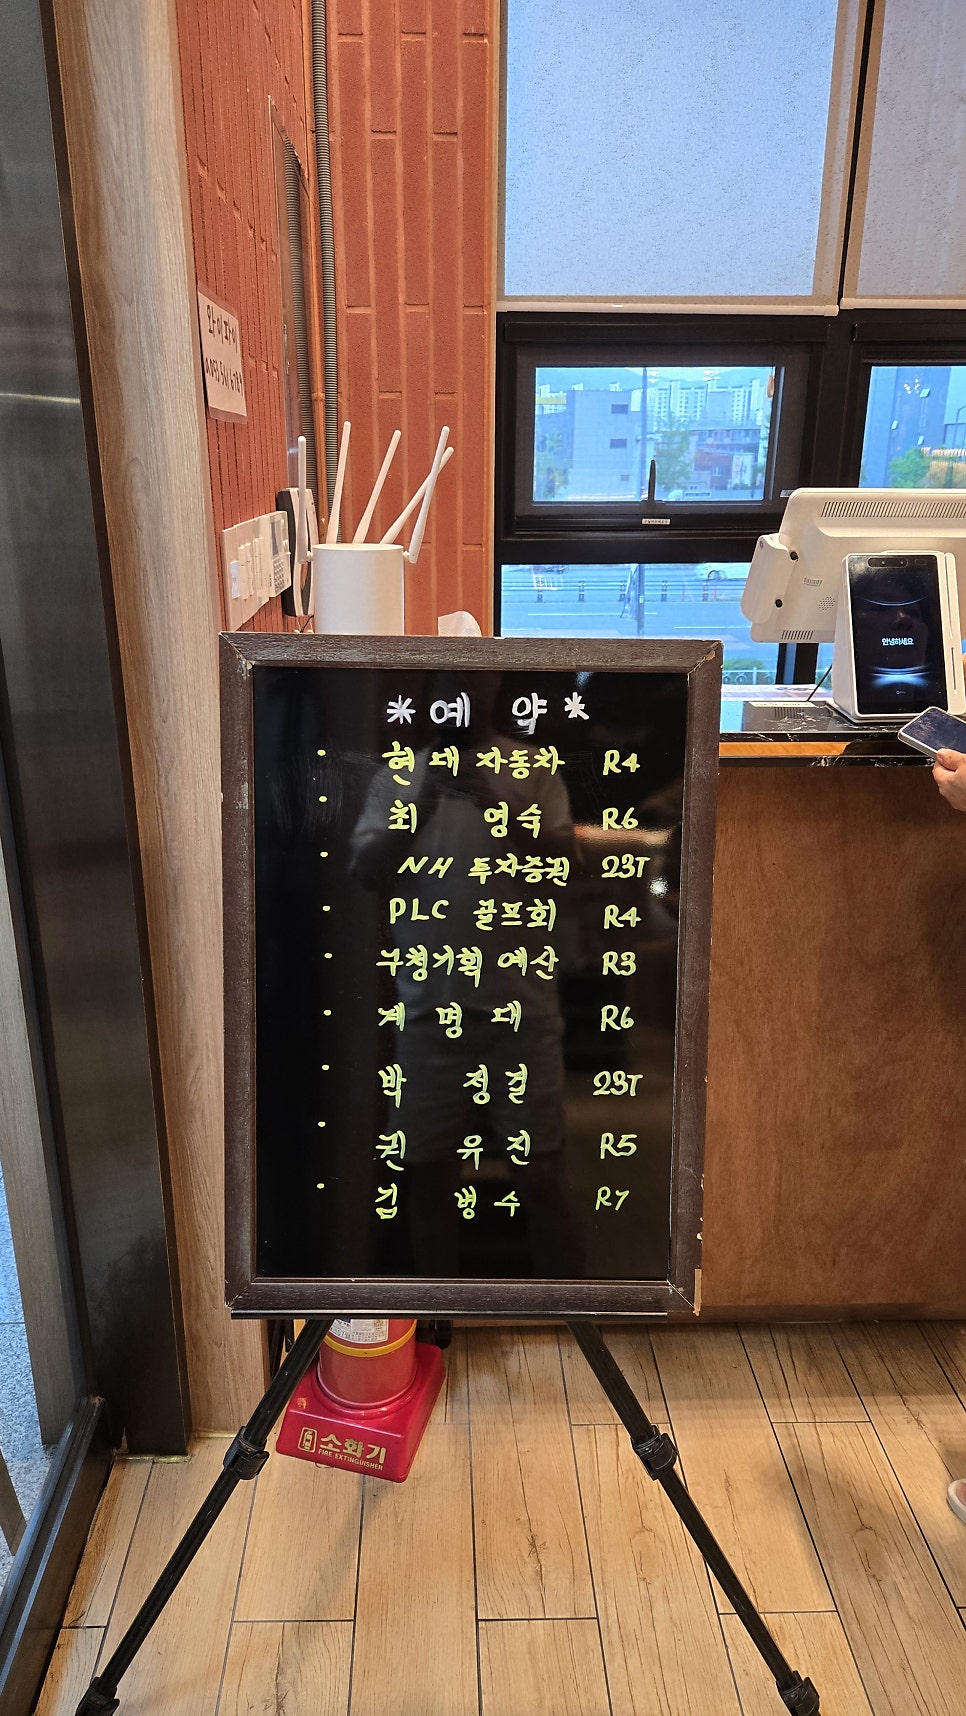 와이파이
안녕하세요
*예 약*
• 현대자동차 R4
• 최 영숙 R6
• NH 투자증권 23T
• PLC 골프회 R4
• 구청기획 예산 R3
• 제 명 대 R6
• 박 정 걸 23T
• 권 유 진 R5
• 김 병 수 R7
소화기
FIRE EXTINGUISHER